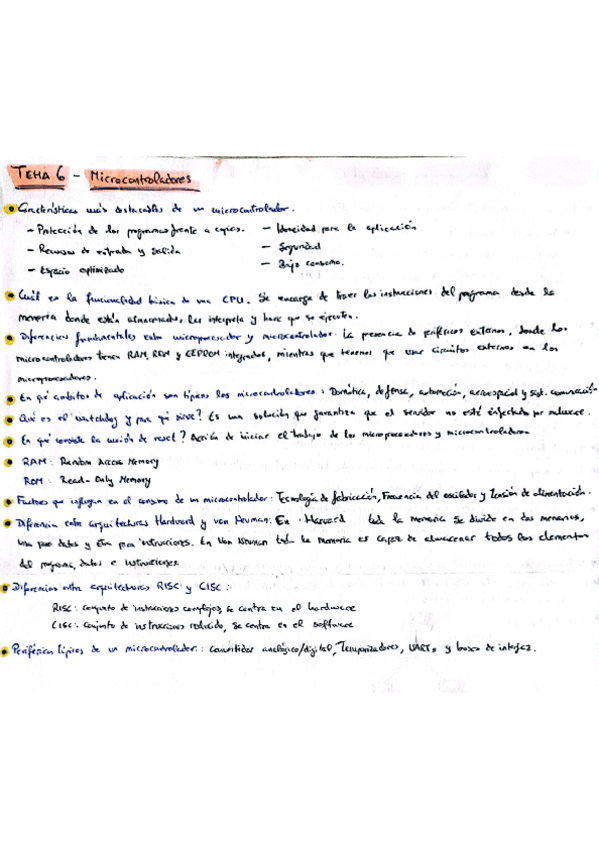 TEMA 6 - Microcontroladores
Características más destacables de un microcontrolador.
- Protección de los programas frente a copias. - Idoneidad para la aplicación
- Recursos de entrada y salida - Seguridad
- Espacio optimizado - Bajo consumo.
Cuál es la funcionalidad básica de una CPU. Se encarga de traer las instrucciones del programa desde la
memoria donde están almacenados, las interpreta y hace que se ejecuten.
Diferencias fundamentales entre microprocesador y microcontrolador: La presencia de periféricos externos, donde los
microcontroladores tienen RAM, ROM y EEPROM integrados, mientras que tenemos que usar circuitos externos en los
microprocesadores.
En qué ámbitos de aplicación son típicos los microcontroladores: Domótica, defensa, automoción, aeroespacial y sist. comunicación
Qué es el watchdog y para qué sirve? Es una solución que garantiza que el servidor no esté infectado por malware.
En qué consiste la acción de reset? Acción de iniciar el trabajo de los microprocesadores y microcontroladores
RAM: Random Access Memory
ROM: Read-Only Memory
Factores que influyen en el consumo de un microcontrolador: Tecnología de fabricación, Frecuencia del oscilador y Tensión de alimentación.
Diferencia entre arquitecturas Hardvard y von Neuman: En Harvard la memoria se divide en dos memorias,
una para datos y otra para instrucciones. En Von Neuman la memoria es capaz de almacenar todos los elementos
del programa, datos e instrucciones.
Diferencias entre arquitecturas RISC y CISC:
RISC: conjunto de instrucciones complejos, se centra en el hardware
CISC: conjunto de instrucciones reducido, se centra en el software
Periféricos típicos de un microcontrolador: convertidor analógico/digital, Temporizadores, UARTs y buses de interfaz.